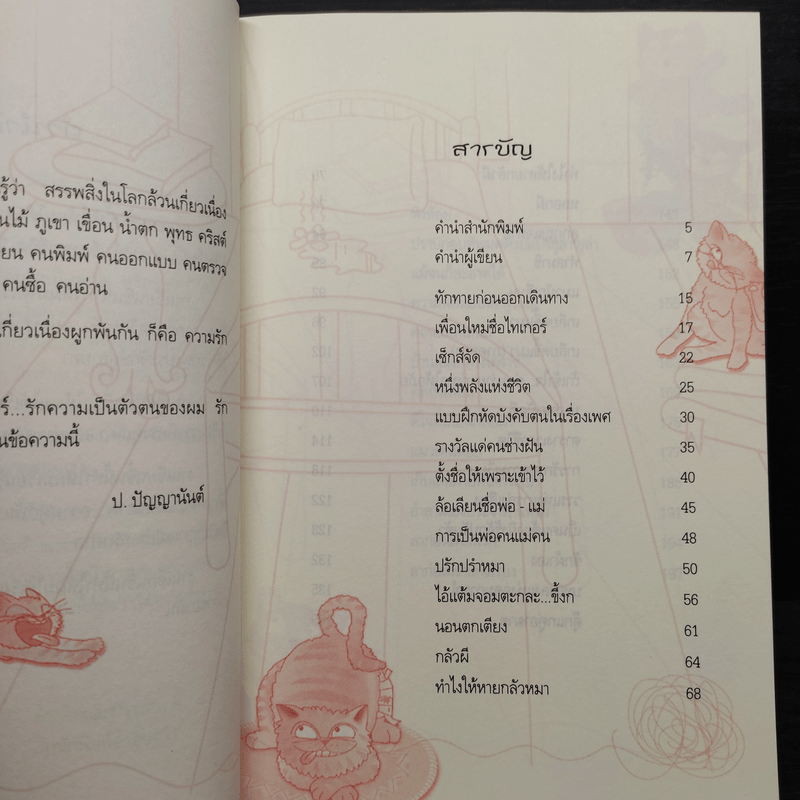 รู้ว่า สรรพสิ่งในโลกล้วนเกี่ยวเนื่อง
นไม้ ภูเขา เขื่อน น้ำตก พุทธ คริสต์
ยน คนพิมพ์ คนออกแบบ คนตรวจ
คนซื้อ คนอ่าน
กี่ยวเนื่องผูกพันกัน ก็คือ ความรัก
ร์...รักความเป็นตัวตนของผม รัก
นข้อความนี้
ป. ปัญญานันต์
สารบัญ
คำนำสำนักพิมพ์ 5
คำนำผู้เขียน 7
ทักทายก่อนออกเดินทาง 15
เพื่อนใหม่ชื่อไทเกอร์ 17
เซ็กส์จัด 22
หนึ่งพลังแห่งชีวิต 25
แบบฝึกหัดบังคับตนในเรื่องเพศ 30
รางวัลแด่คนช่างฝัน 35
ตั้งชื่อให้เพราะเข้าไว้ 40
ล้อเลียนชื่อพ่อ - แม่ 45
การเป็นพ่อคนแม่คน 48
ปรักปรำหมา 50
ไอ้แต้มจอมตะกละ...ขี้งก 56
นอนตกเตียง 61
กลัวผี 64
ทำไงให้หายกลัวหมา 68